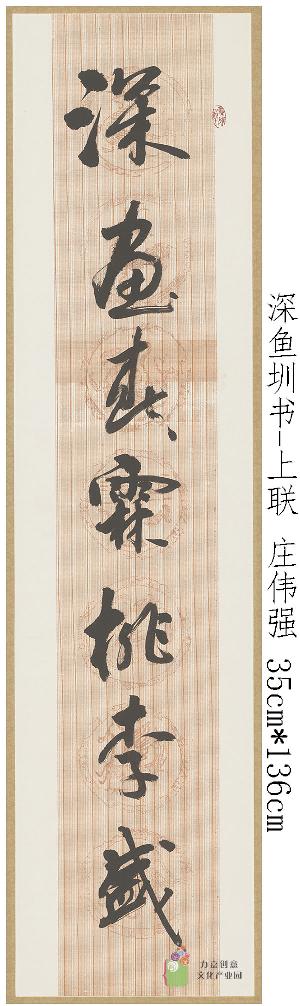 深霖桃李盛
深鱼圳书-上联 庄伟强 35cm*136cm
力嘉创意
文化产业园